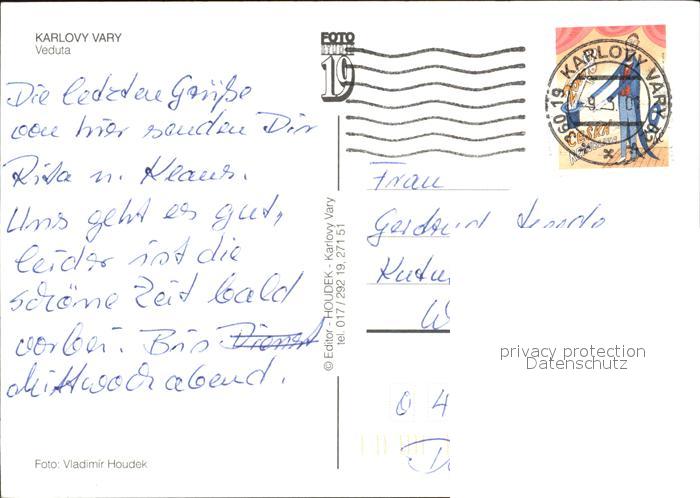 KARLOVY VARY
Veduta
FOTO
19
360 19 KARLOVY VARY
ČESKÁ
Die letzten Grüße
von hier senden Dir
Rita u. Klaus.
Uns geht es gut,
leider ist die
schöne Zeit bald
vorbei. Bis Dienst
Mittwochabend.
© Editor - HOUDEK - Karlovy Vary
tel. 017 / 292 19, 271 51
Frau
W
0 4
privacy protection
Datenschutz
Foto: Vladimír Houdek